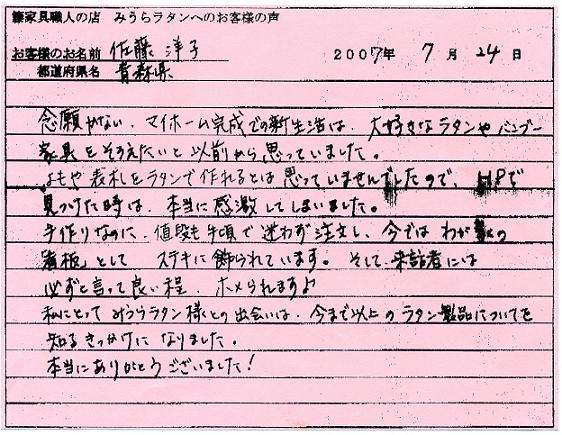 籐家具職人の店 みうらラタンへのお客様の声
お客様のお名前 佐藤洋子 2007年 7月 24日
都道府県名 青森県
念願かない、マイホーム完成での新生活は、大好きなラタンやバンブー
家具をそろえたいと以前から思っていました。
よもや表札をラタンで作れるとは思っていませんでしたので、HPで
見つけた時は、本当に感激してしまいました。
手作りなのに、値段も手頃で迷わず注文し、今では わが家の
看板」として ステキに飾られています。そして来訪者には
必ずと言って良い程、ホメられますよ
私にとって みうらラタン様との出会いは、今まで以上の ラタン製品についてを
知る きっかけに なりました。
本当にありがとうございました!